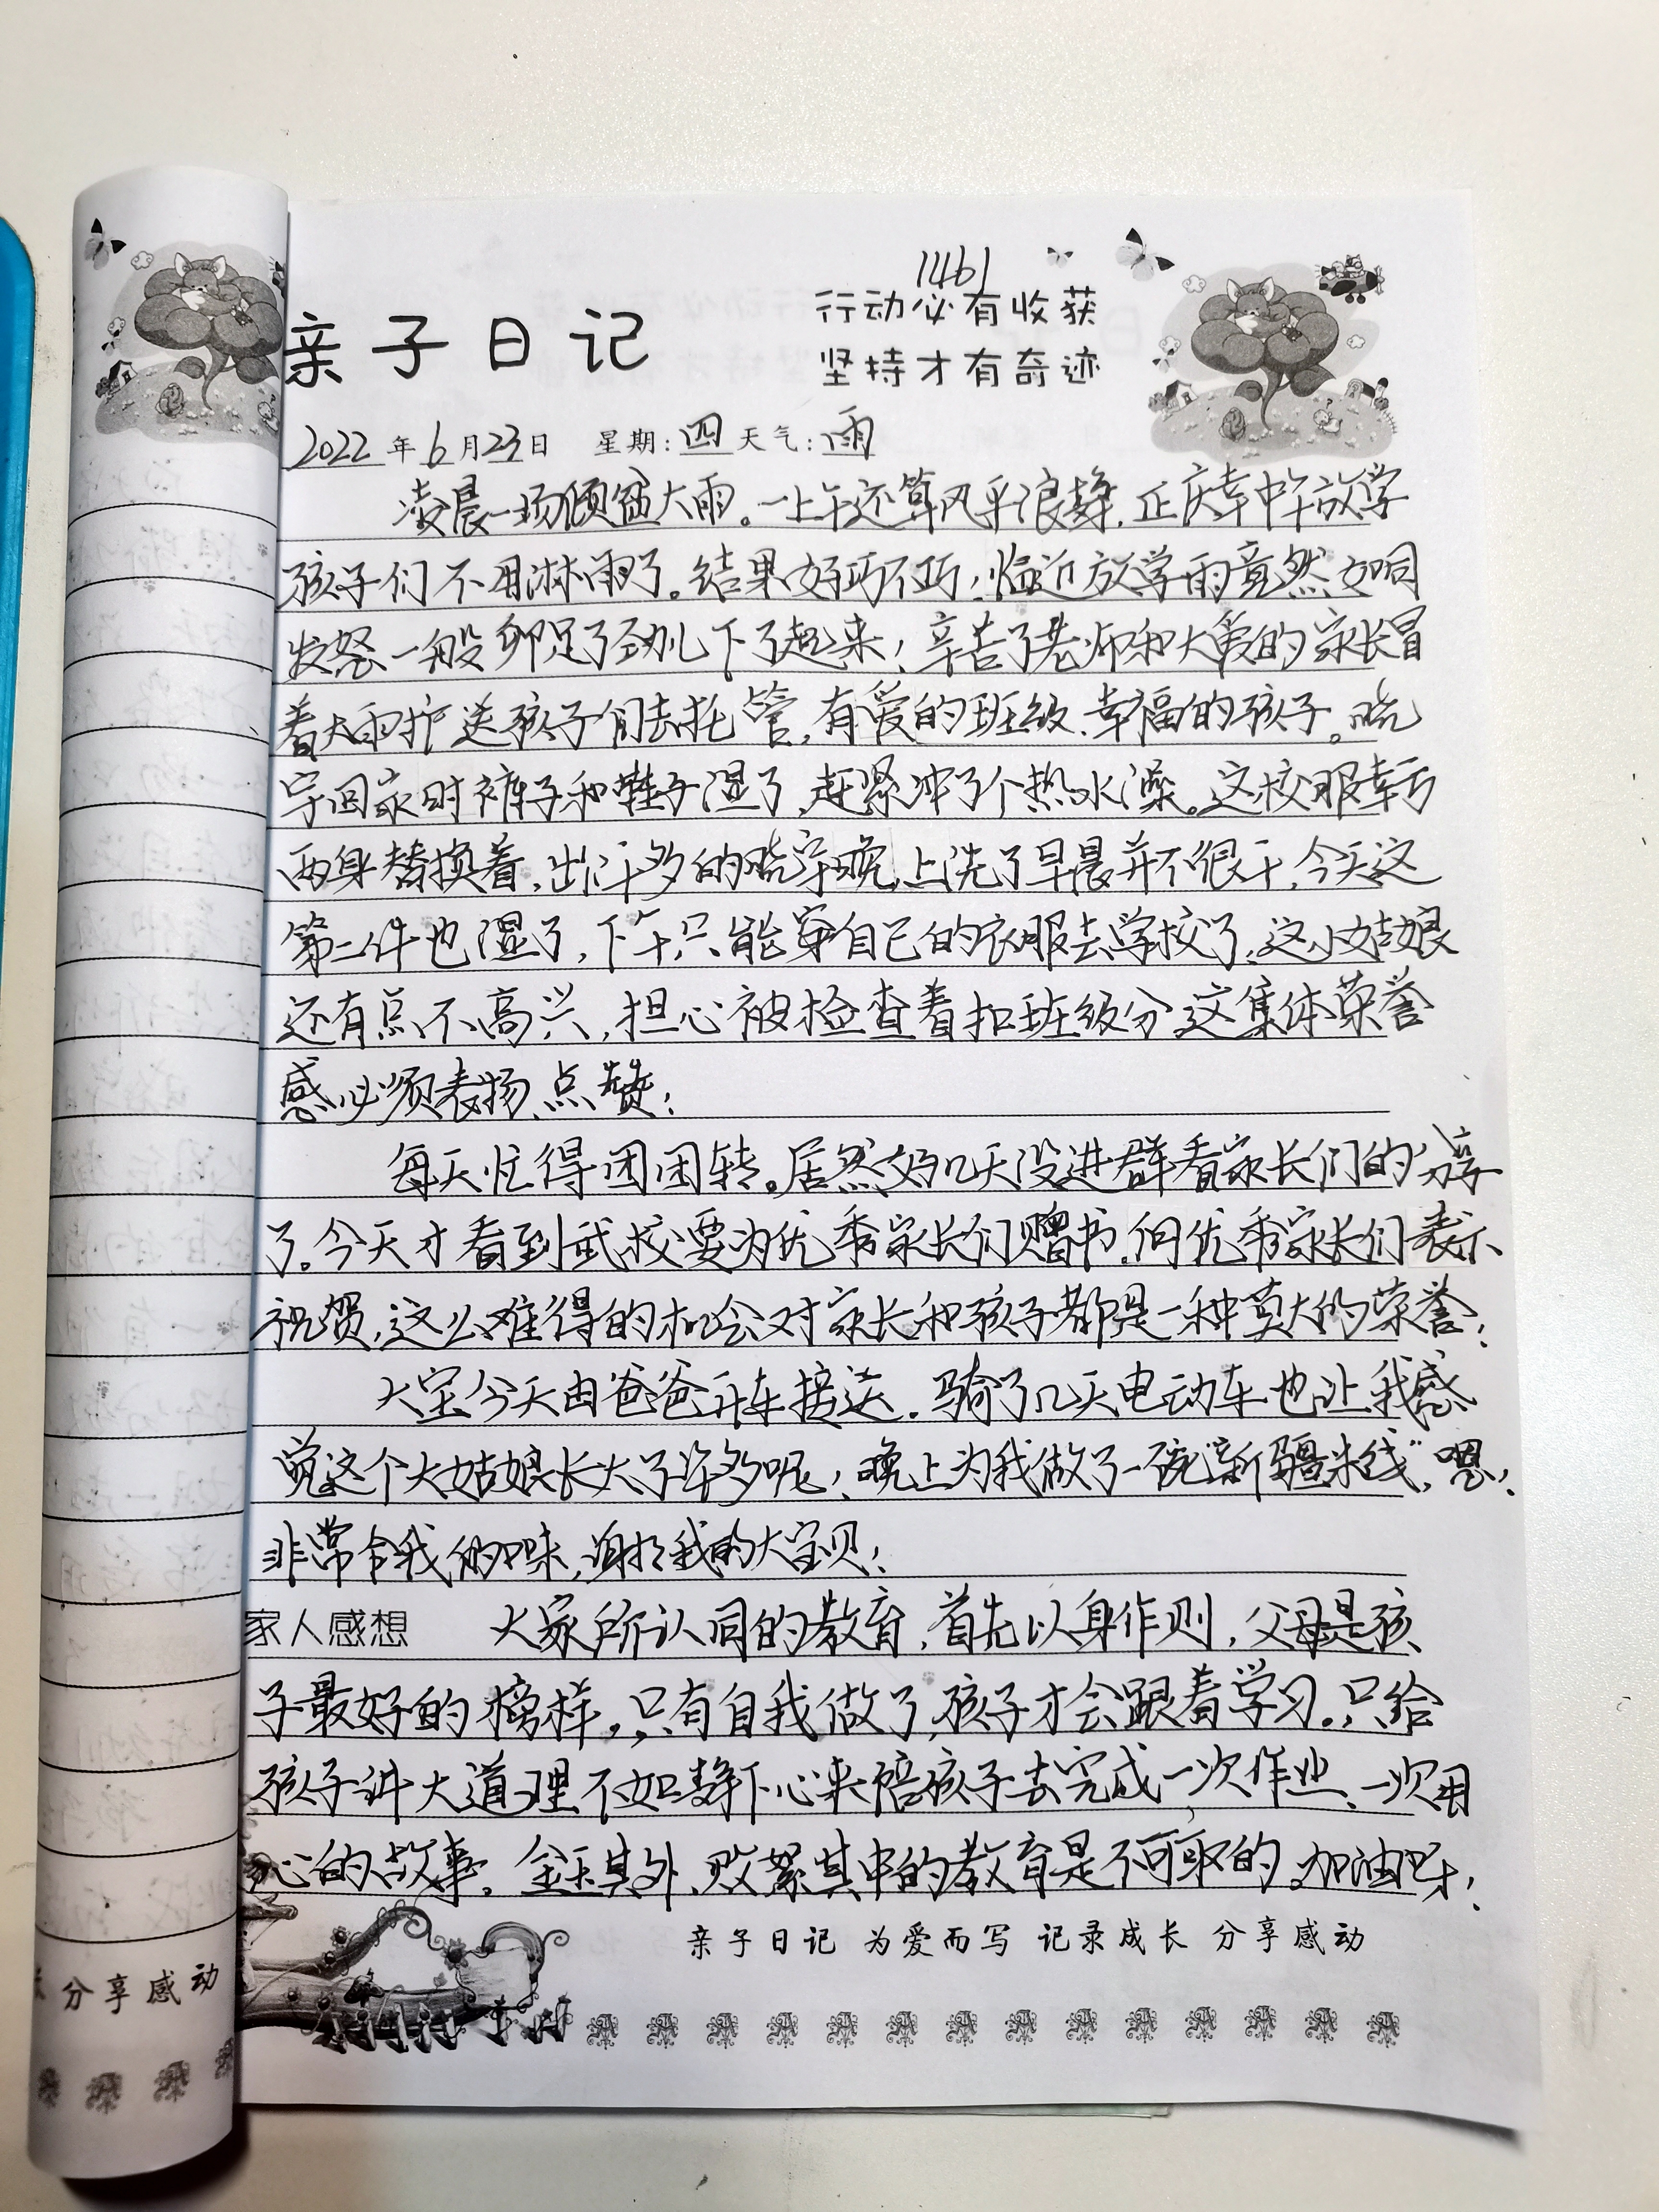 1461
亲子日记
行动必有收获
坚持才有奇迹
2022年6月23日 星期:四 天气:雨
凌晨一场倾盆大雨。一上午还算风平浪静,正庆幸中午放学
孩子们不用淋雨了。结果好巧不巧!临近放学雨竟然如同
发怒一般卯足了劲儿下了起来!辛苦了老师和大爱的家长冒
着大雨护送孩子们去托管,有爱的班级、幸福的孩子。晓
宇回家时裤子和鞋子湿了,赶紧冲了个热水澡。这校服幸亏
两身替换着,出汗多的晓宇晚上洗了早晨并不很干,今天这
第二件也湿了,下午只能穿自己的衣服去学校了,这小姑娘
还有点不高兴,担心被检查着扣班级分,这集体荣誉
感必须表扬、点赞!
每天忙得团团转。居然好几天没进群看家长们的分享
了。今天才看到武校要为优秀家长们赠书,向优秀家长们表示
祝贺,这么难得的机会对家长和孩子都是一种莫大的荣誉!
大宝今天由爸爸开车接送。骑了几天电动车也让我感
觉这个大姑娘长大了许多呢!晚上为我做了一碗“新疆米线”,嗯!
非常合我的口味,谢谢我的大宝贝!
家人感想 大家所认同的教育,首先以身作则,父母是孩
子最好的榜样,只有自我做了,孩子才会跟着学习。只给
孩子讲大道理不如静下心来陪孩子去完成一次作业、一次用
心的故事。金玉其外、败絮其中的教育是不可取的,加油呀!
亲子日记 为爱而写 记录成长 分享感动
分享感动